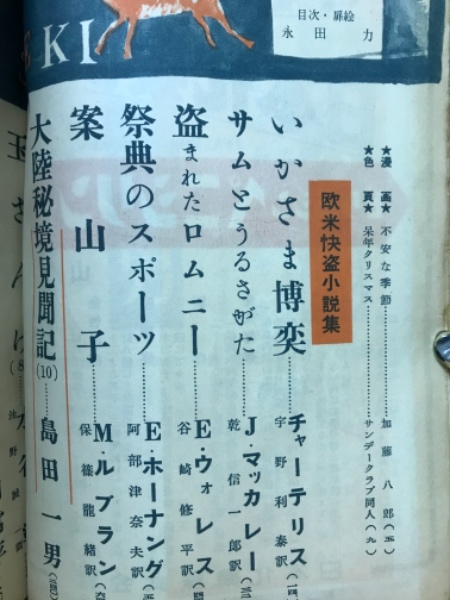 KI
目次・扉絵
永田力
★漫画★ 不安な季節…………加藤八郎(五)
★色頁★ 呆年クリスマス…………サンデークラブ同人(九)
欧米快盗小説集
いかさま博奕…………チャーテリス
宇野利泰訳
サムとうるさがた…………J・マッカレー
乾信一郎訳
盗まれたロムニー…………E・ウォレス
谷崎修平訳
祭典のスポーツ…………E・ホーナング
阿部津奈夫訳
案山子…………M・ルブラン
保篠龍緒訳
大陸秘境見聞記(10)……島田一男